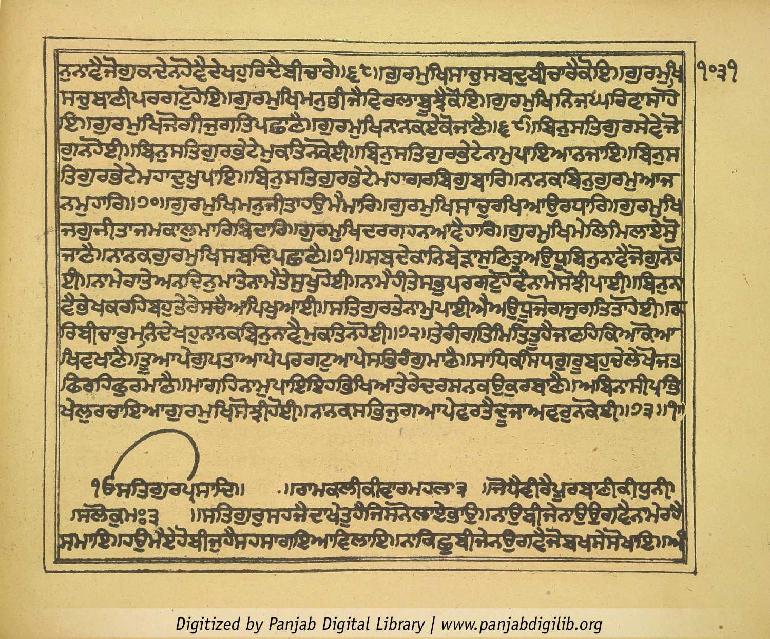 ਨੁਨਾਵੈਜੋਗੁਕਦੇਨਹੋਵੈਦੇਖਹੁਰਿਦੈਬੀਚਾਰੇ॥੬੮॥ਗੁਰਮੁਖਿਸਾਚੁਸਬਦੁਬੀਚਾਰੈਕੋਇ॥ਗੁਰਮੁਖਿ ੧੦੩੧
ਸਚੁਬਾਣੀਪਰਗਟੁਹੋਇ॥ਗੁਰਮੁਖਿਮਨੁਭੀਜੈਵਿਰਲਾਬੂਝੈਕੋਇ॥ਗੁਰਮੁਖਿਨਿਜਘਰਿਵਾਸਾਹੋ
ਇ॥ਗੁਰਮੁਖਿਜੋਗੀਜੁਗਤਿਪਛਾਣੈ॥ਗੁਰਮੁਖਿਨਾਨਕਏਕੋਜਾਣੈ॥੬੯॥ਬਿਨੁਸਤਿਗੁਰਸੇਵੇਜੋ
ਗੁਨਹੋਈ॥ਬਿਨੁਸਤਿਗੁਰਭੇਟੇਮੁਕਤਿਨਕੋਈ॥ਬਿਨੁਸਤਿਗੁਰਭੇਟੇਨਾਮੁਪਾਇਆਨਜਾਇ॥ਬਿਨੁਸ
ਤਿਗੁਰਭੇਟੇਮਹਾਦੁਖੁਪਾਇ॥ਬਿਨੁਸਤਿਗੁਰਭੇਟੇਮਹਾਗਰਬਿਗੁਬਾਰਿ॥ਨਾਨਕਬਿਨੁਗੁਰਮੁਆਜ
ਨਮੁਹਾਰਿ॥੭੦॥ਗੁਰਮੁਖਿਮਨੁਜੀਤਾਹਉਮੈਮਾਰਿ॥ਗੁਰਮੁਖਿਸਾਚੁਰਖਿਆਉਰਧਾਰਿ॥ਗੁਰਮੁਖਿ
ਜਗੁਜੀਤਾਜਮਕਾਲੁਮਾਰਿਬਿਦਾਰਿ॥ਗੁਰਮੁਖਿਦਰਗਹਨਆਵੈਹਾਰਿ॥ਗੁਰਮੁਖਿਮੇਲਿਮਿਲਾਏਸੋ
ਜਾਣੈ॥ਨਾਨਕਗੁਰਮੁਖਿਸਬਦਿਪਛਾਣੈ॥੭੧॥ਸਬਦੈਕਾਨਿਬੇੜਾਸੁਣਿਤੂਅਉਧੂਬਿਨੁਨਾਵੈਜੋਗੁਨਹੋ
ਈ॥ਨਾਮੇਰਾਤੇਅਨਦਿਨੁਮਾਤੇਨਾਮੈਤੇਸੁਖੁਹੋਈ॥ਨਾਮੈਹੀਤੇਸਭੁਪਰਗਟੁਹੋਵੈਨਾਮੇਸੋਝੀਪਾਈ॥ਬਿਨੁਨਾ
ਵੈਭੇਖਕਰਹਿਬਹੁਤੇਰੇਸਚੈਆਪਿਖੁਆਈ॥ਸਤਿਗੁਰਤੇਨਾਮੁਪਾਈਐਅਉਧੂਜੋਗਜੁਗਤਿਤਾਹੋਈ॥ਕ
ਰਿਬੀਚਾਰੁਮਨਿਦੇਖਹੁਨਾਨਕਬਿਨੁਨਾਵੈਮੁਕਤਿਨਹੋਈ॥੭੨॥ਤੇਰੀਗਤਿਮਿਤਿਤੂਹੈਜਾਣਹਿਕਿਆਕੋਆ
ਖਿਵਖਾਣੈ॥ਤੂਆਪੇਗੁਪਤਾਆਪੇਪਰਗਟੁਆਪੇਸਭਿਰੰਗਮਾਣੈ॥ਸਾਧਿਕਸਿਧਗੁਰੂਬਹੁਚੇਲੇਖੋਜਤ
ਫਿਰਹਿਫੁਰਮਾਣੈ॥ਮਾਗਹਿਨਾਮੁਪਾਇਇਹਭਿਖਿਆਤੇਰੇਦਰਸਨਕਉਕੁਰਬਾਣੈ॥ਅਬਿਨਾਸੀਪ੍ਰਭਿ
ਖੇਲੁਰਚਾਇਆਗੁਰਮੁਖਿਸੋਝੀਹੋਈ॥ਨਾਨਕਸਭਿਜੁਗਆਪੇਵਰਤੈਦੂਜਾਅਵਰੁਨਕੋਈ॥੭੩॥੧॥
ੴਸਤਿਗੁਰਪ੍ਰਸਾਦਿ॥ ॥ਰਾਮਕਲੀਕੀਵਾਰਮਹਲਾ੩ ॥ਜੋਧੈਵੀਰੈਪੂਰਬਾਣੀਕੀਧੁਨੀ॥
॥ਸਲੋਕੁਮਃ੩ ॥ਸਤਿਗੁਰੁਸਹਜੈਦਾਖੇਤੁਹੈਜਿਸਨੋਲਾਏਭਾਉ॥ਨਾਉਬੀਜੇਨਾਉਉਗਵੈਨਾਮੇਰਹੈ
ਸਮਾਇ॥ਹਉਮੈਏਹੋਬੀਜੁਹੈਸਹਸਾਗਇਆਵਿਲਾਇ॥ਨਾਕਿਛੁਬੀਜੇਨਉਗਵੈਜੋਬਖਸੇਸੋਖਾਇ॥ਅੰ
Digitized by Panjab Digital Library | www.panjabdigilib.org